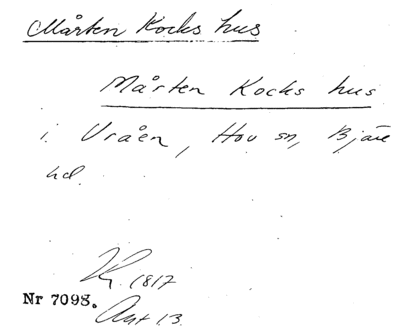 Mårten Kocks hus
Mårten Kocks hus
i Vråen, Hov sn, Bjäre
hd.
1817
Nr 7098.
Akt 13.